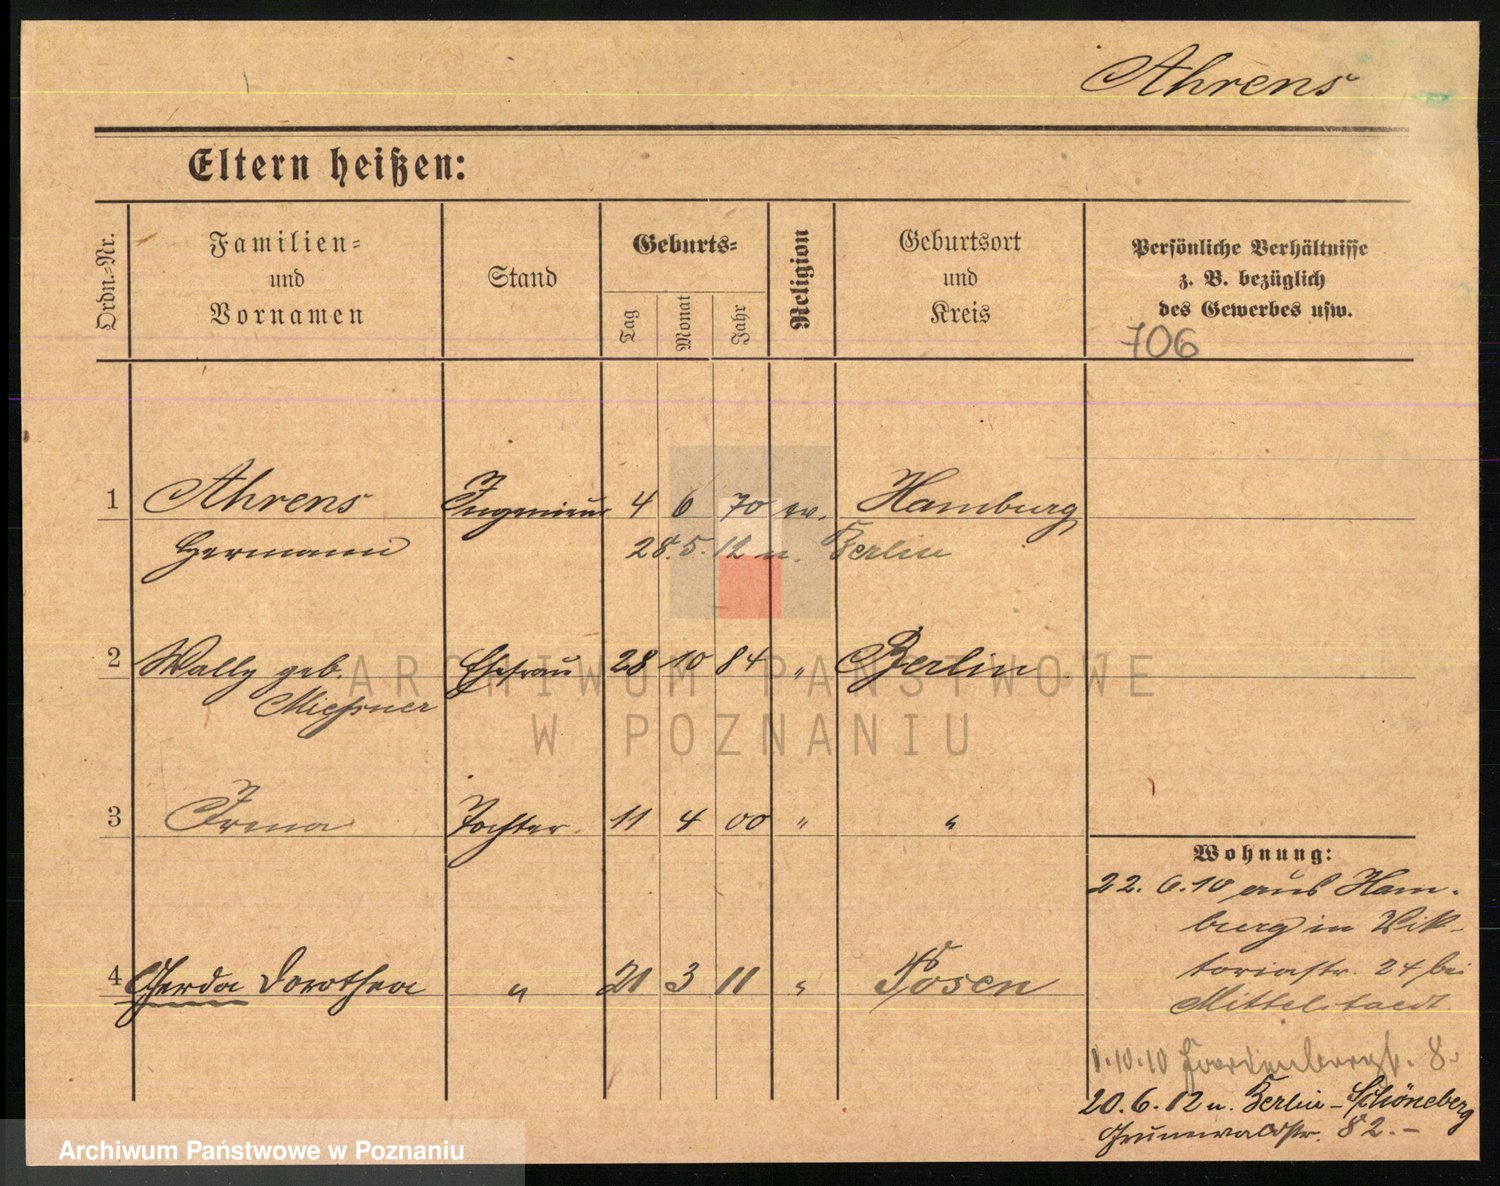 Ahrens
Eltern heißen:
Ordn.-Nr.
Familien-
und
Vornamen
Stand
Geburts-
Tag
Monat
Jahr
Religion
Geburtsort
und
Kreis
Persönliche Verhältnisse
z. B. bezüglich
des Gewerbes usw.
706
1 Ahrens Ingenieur 4 6 70 ev. Hamburg
Hermann 28. 5. 12 n. Berlin
2 Wally geb. Ehefrau 28 10 84 „ Berlin
Mießner
3 Irena Tochter. 11 4 00 „ „
4 Gerda Dorothea „ 21 3 11 „ Posen
Wohnung:
22. 6. 10 aus Ham-
burg in Vik-
toriastr. 24 bei
Mittelstaedt.
1.10.10 8.
20. 6. 12 n. Berlin-Schöneberg
Grunewaldstr. 82.-
ARCHIWUM PAŃSTWOWE
W POZNANIU
Archiwum Państwowe w Poznaniu